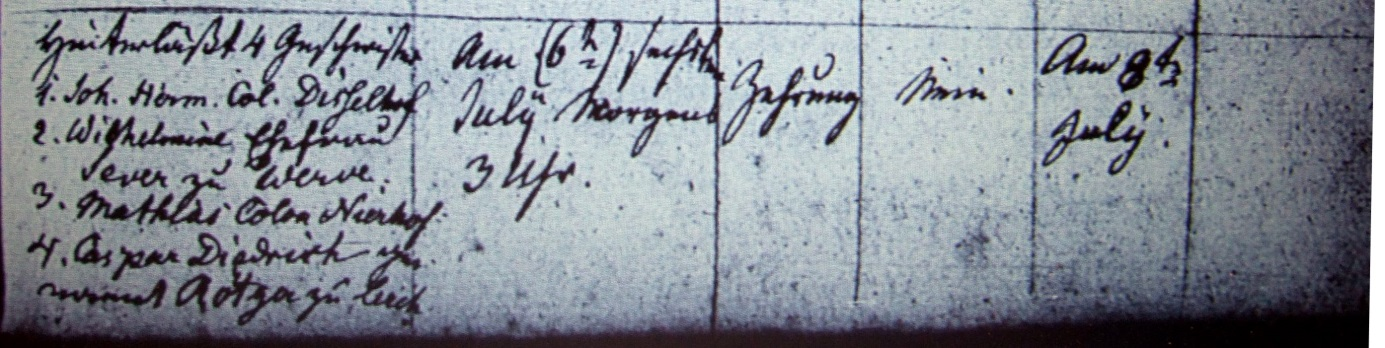 Hinterläßt 4 Geschwister
1. Joh. Herm. Col. Disselhof
2. Wilhelmine Ehefrau
Sever zu Werve.
3. Mathias Colon Nierhof.
4. Caspar Diedrich
Rötger zu
Am (6t) sechsten
July Morgens
3 Uhr.
Zehrung
Nein.
Am 8t
July.